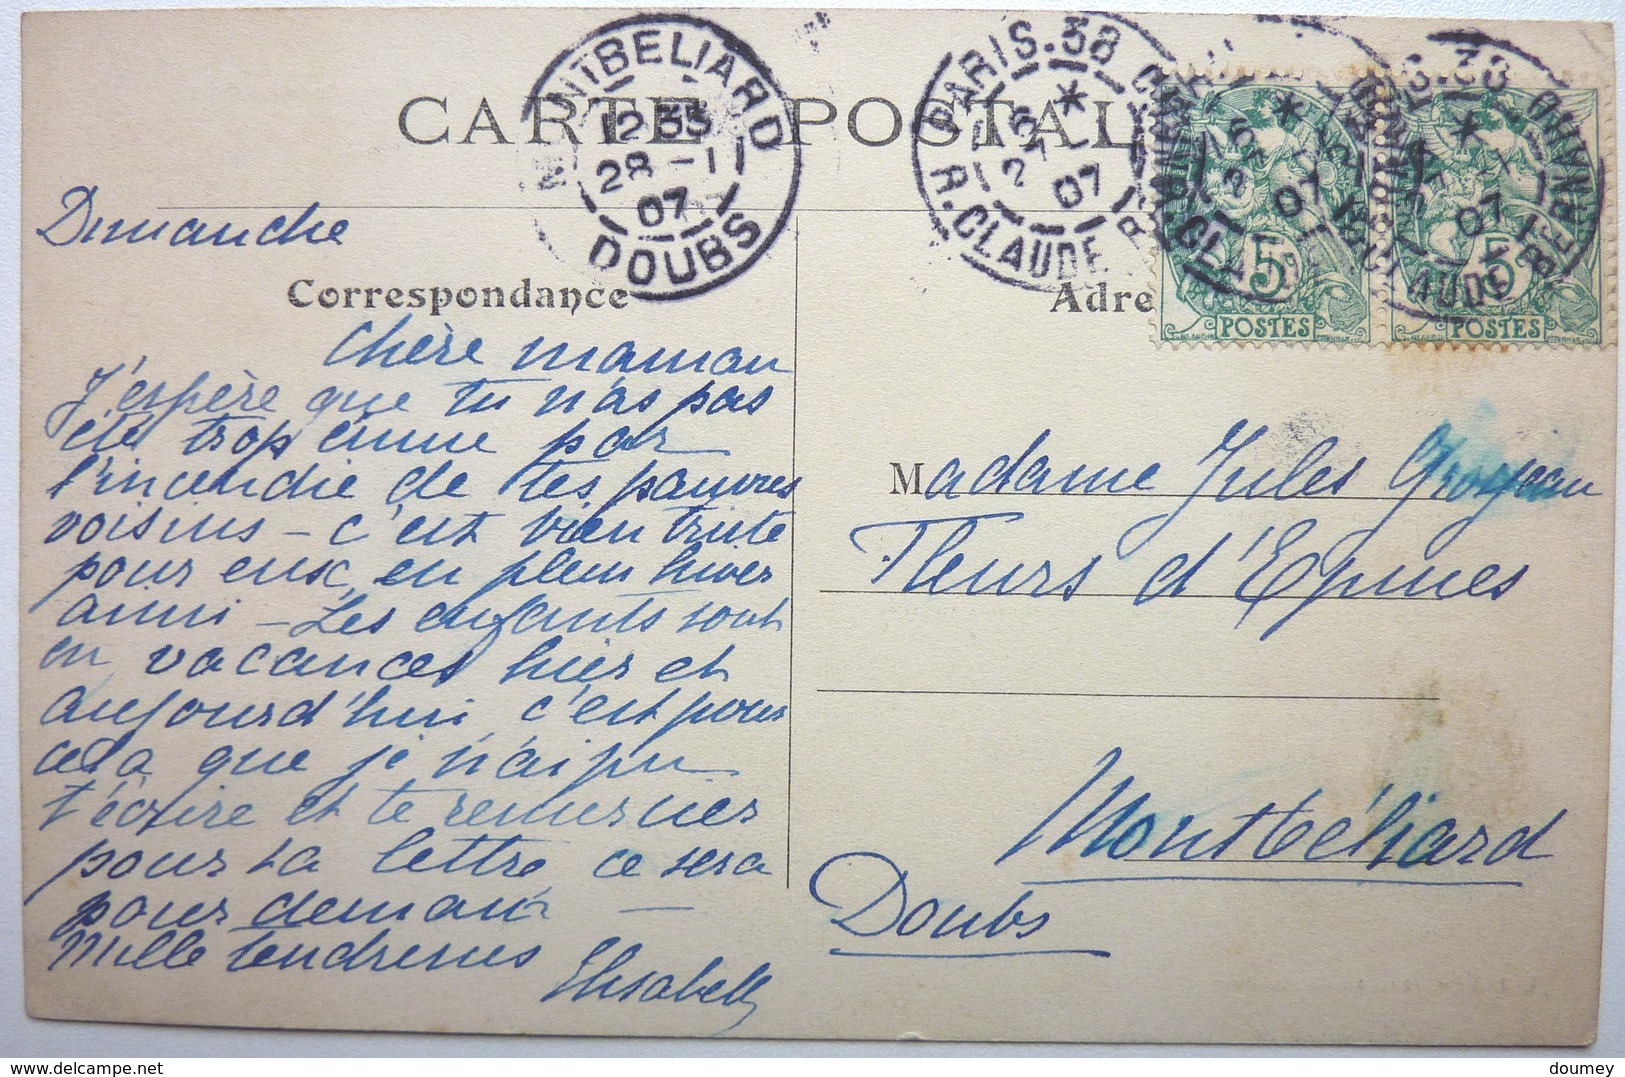 CARTE POSTAL
MONTBELIARD
12 35
28 - 1
07
DOUBS
PARIS.38
27 - 1
07
R. CLAUDE BERNARD
5
POSTES
5
POSTES
Dimanche
Correspondance
Chère maman
J'espère que tu n'as pas
été trop émue par
l'incendie de tes pauvres
voisins – c'est bien triste
pour eux, en plein hiver
ainsi – Les enfants sont
en vacances hier et
aujourd'hui, c'est pour
cela que je n'ai pu
t'écrire et te remercier
pour ta lettre, ce sera
pour demain –
Mille tendresses
Elisabeth
Adre
Madame Jules Grosjean
Fleurs d'Epines
Montbéliard
Doubs
doumey